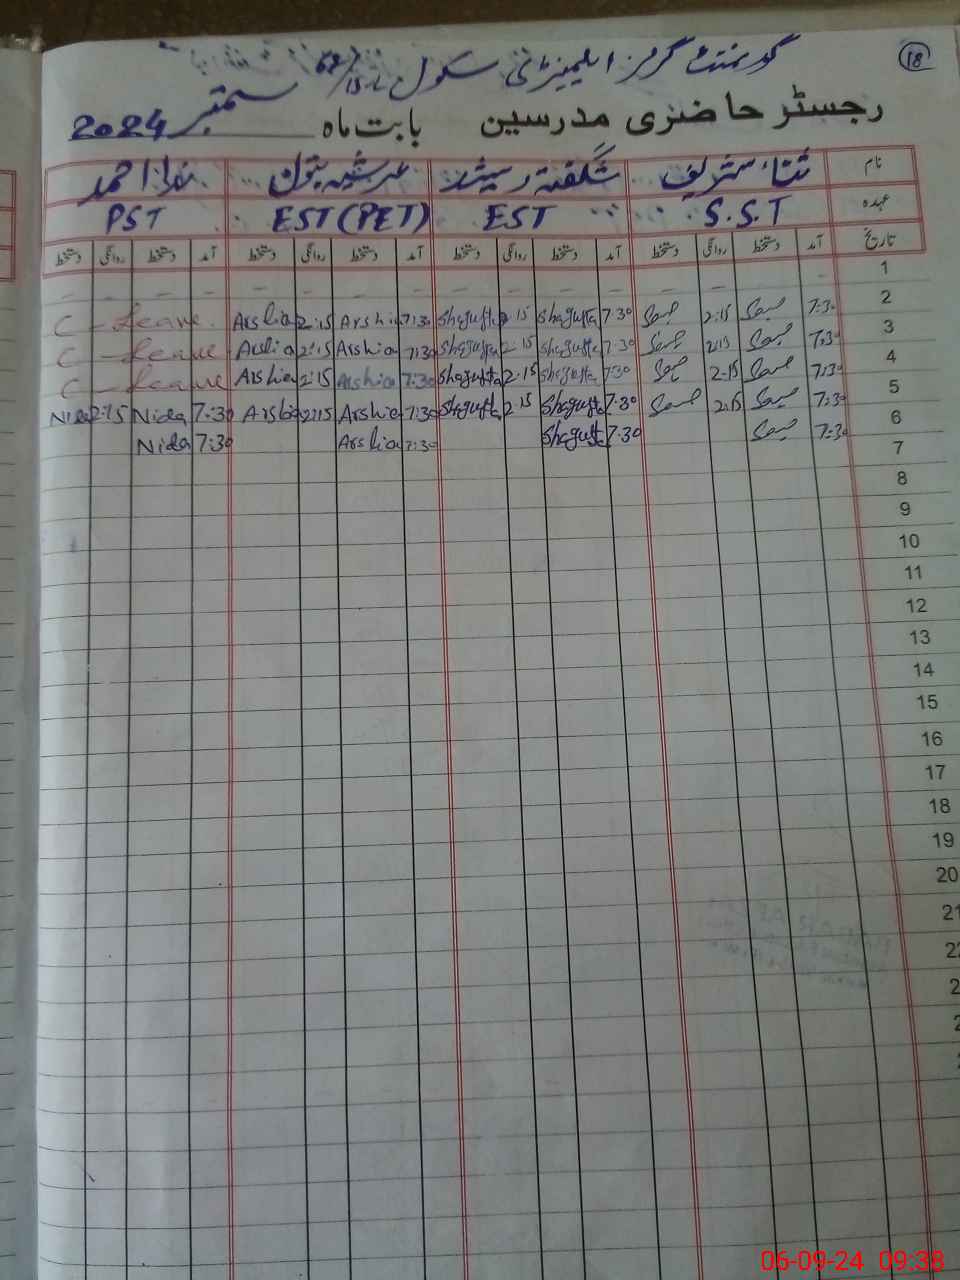 18
گورنمنٹ گرلز ایلیمنٹری سکول 68/15-L
رجسٹر حاضری مدرسین بابت ماہ ستمبر 2024
نام ثناء شریف شگفتہ رشید عرشیہ بتول ندا احمد
عہدہ S.S.T EST EST (PET) PST
تاریخ آمد دستخط روانگی دستخط آمد دستخط روانگی دستخط آمد دستخط روانگی دستخط آمد دستخط روانگی دستخط
1 – – – – – – – – – –
C - Leave. Arshia 2:15 Arshia 7:30 Shagufta 2:15 Shagufta 7:30 2:15 7:30 2
C - Leave Arshia 2:15 Arshia 7:30 Shagufta 2:15 Shagufta 7:30 2:15 7:30 3
C - Leave Arshia 2:15 Arshia 7:30 Shagufta 2:15 Shagufta 7:30 2:15 7:30 4
Nida 2:15 Nida 7:30 Arshia 2:15 Arshia 7:30 Shagufta 2:15 Shagufta 7:30 2:15 7:30 5
Nida 7:30 Arshia 7:30 Shagufta 7:30 7:30 6
7
8
9
10
11
12
13
14
15
16
17
18
19
20
21
06-09-24 09:38